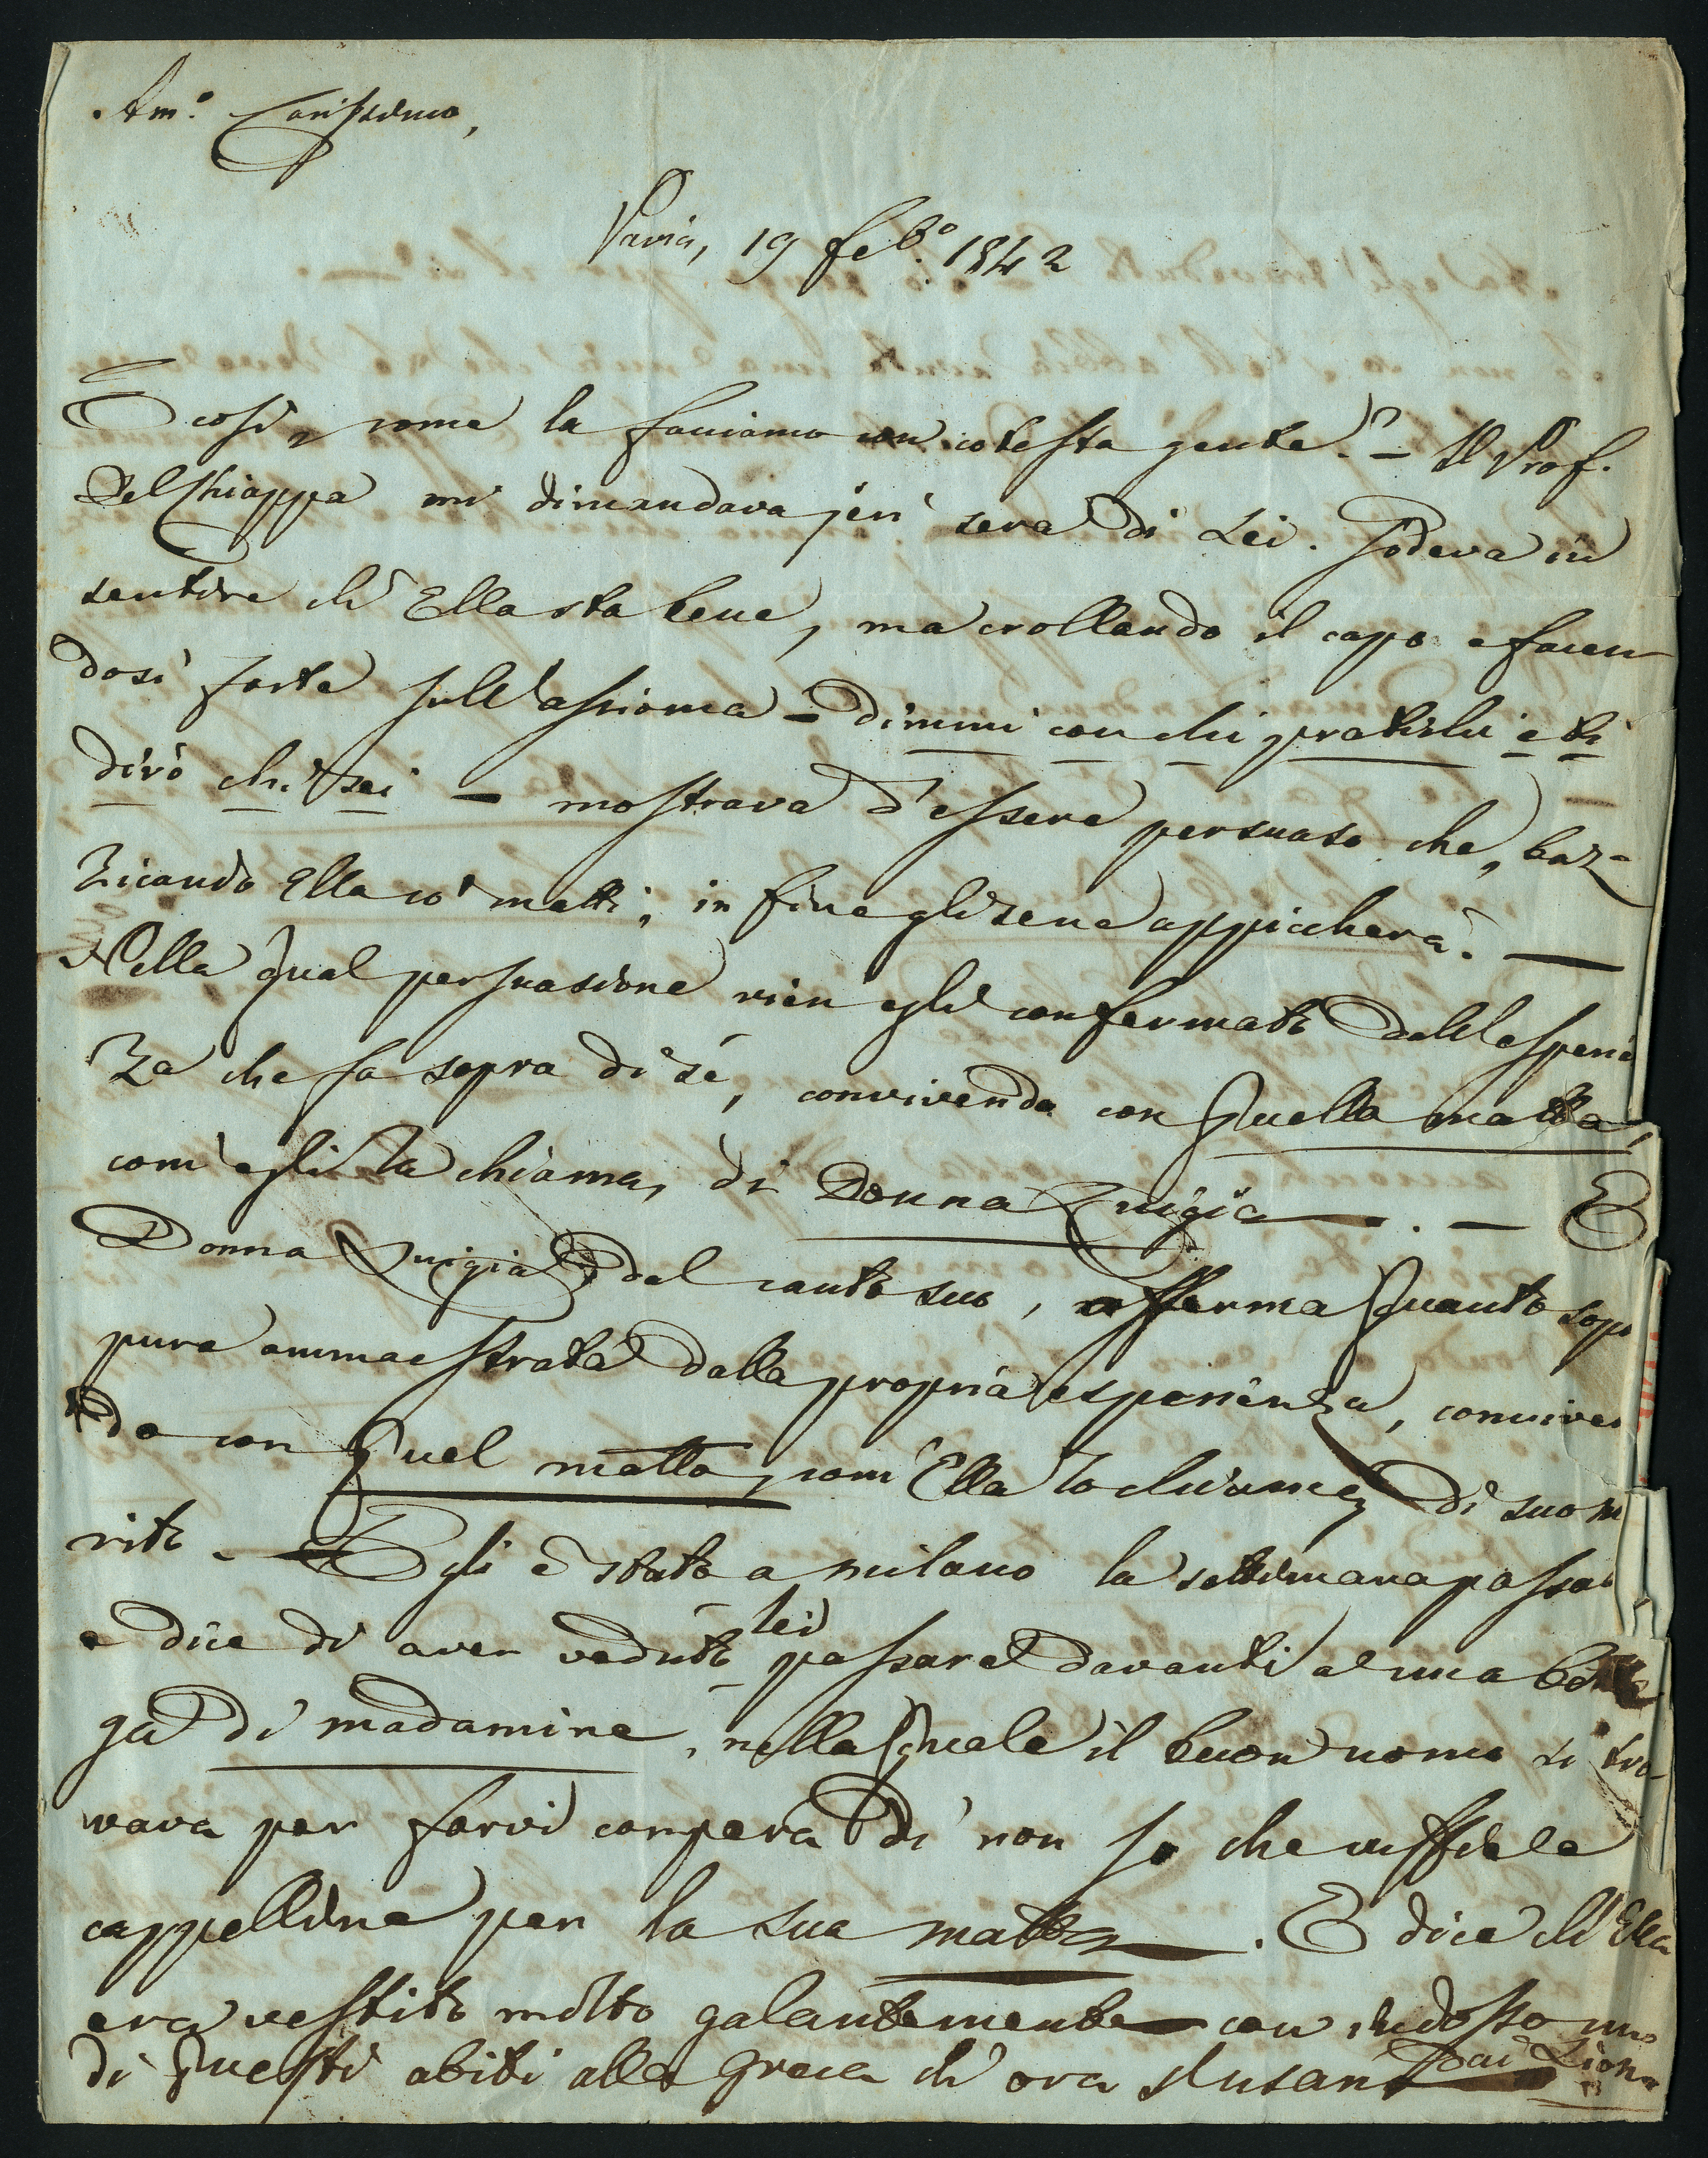 Am.o Carissimo,
Pavia, 19 feb.o 1842
E così, come la facciamo con cotesta gente? — Il Prof.
Del Chiappa mi dimandava jeri sera di Lei. Godeva in
sentire ch' Ella sta bene, ma crollando il capo e facen
dosi forte sull'assioma — dimmi con chi pratichi e ti
dirò chi sei — mostrava d'essere persuaso che, baz-
zicando Ella co' matti, in fine gli se ne appiccherà. —
Nella qual persuasione vien egli confermato dall'esperien
za che fa sopra di sé, convivendo con quella matta,
com' egli la chiama, di Donna Luigia — . — E
Donna Luigia dal canto suo, afferma quanto sop
pure ammaestrata dalla propria esperienza, conviven
do con quel matto, com' Ella lo chiama, di suo m
rito. — Egli è stato a Milano la settimana passat
e dice di aver veduto lei passare davanti a una botte
ga di madamine, nella quale il buon uomo si tro-
vava per farvi compera di non so che cuffie e
cappelline per la sua matta — . E dice ch' Ella
era vestito molto galantemente — con indosso uno
di questi abiti alla greca ch' ora s'usano dai Lion